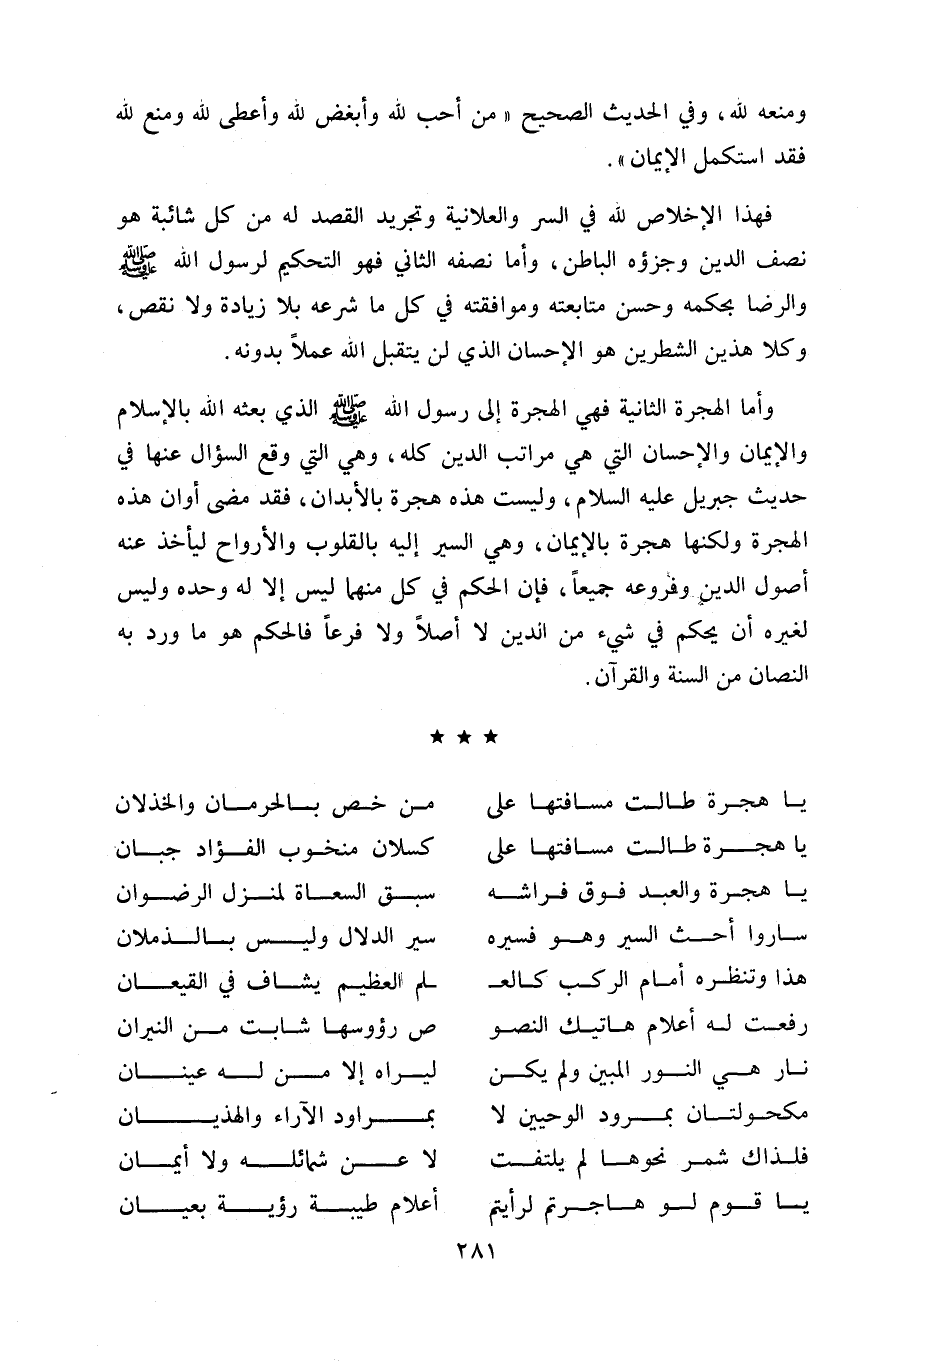 ومنعه لله، وفي الحديث الصحيح « من أحب لله وأبغض لله وأعطى لله ومنع لله
فقد استكمل الإيمان».
فهذا الإخلاص لله في السر والعلانية وتجريد القصد له من كل شائبة هو
نصف الدين وجزؤه الباطن، وأما نصفه الثاني فهو التحكيم لرسول الله ﷺ
والرضا بحكمه وحسن متابعته وموافقته في كل ما شرعه بلا زيادة ولا نقص،
وكلا هذين الشطرين هو الإحسان الذي لن يتقبل الله عملاً بدونه.
وأما الهجرة الثانية فهي الهجرة إلى رسول الله ﷺ الذي بعثه الله بالإسلام
والإيمان والإحسان التي هي مراتب الدين كله، وهي التي وقع السؤال عنها في
حديث جبريل عليه السلام، وليست هذه هجرة بالأبدان، فقد مضى أوان هذه
الهجرة ولكنها هجرة بالإيمان، وهي السير إليه بالقلوب والأرواح ليأخذ عنه
أصول الدين وفروعه جميعاً، فإن الحكم في كل منهما ليس إلا له وحده وليس
لغيره أن يحكم في شيء من الدين لا أصلاً ولا فرعاً فالحكم هو ما ورد به
النصان من السنة والقرآن.
★ ★ ★
يا هجرة طالت مسافتها على من خص بالحرمان والخذلان
يا هجرة طالت مسافتها على كسلان منخوب الفؤاد جبان
يا هجرة والعبد فوق فراشه سبق السعاة لمنزل الرضوان
ساروا أحث السير وهو فسيره سير الدلال وليس بالذملان
هذا وتنظره أمام الركب كالعـ ـلم العظيم يشاف في القيعان
رفعت له أعلام هاتيك النصو ص رؤوسها شابت من النيران
نار هي النور المبين ولم يكن ليراه إلا من له عينان
مكحولتان بمرود الوحيين لا بمراود الآراء والهذيان
فلذاك شمر نحوها لم يلتفت لا عن شمائله ولا أيمان
يا قوم لو هاجرتم لرأيتم أعلام طيبة رؤية بعيان
٢٨١